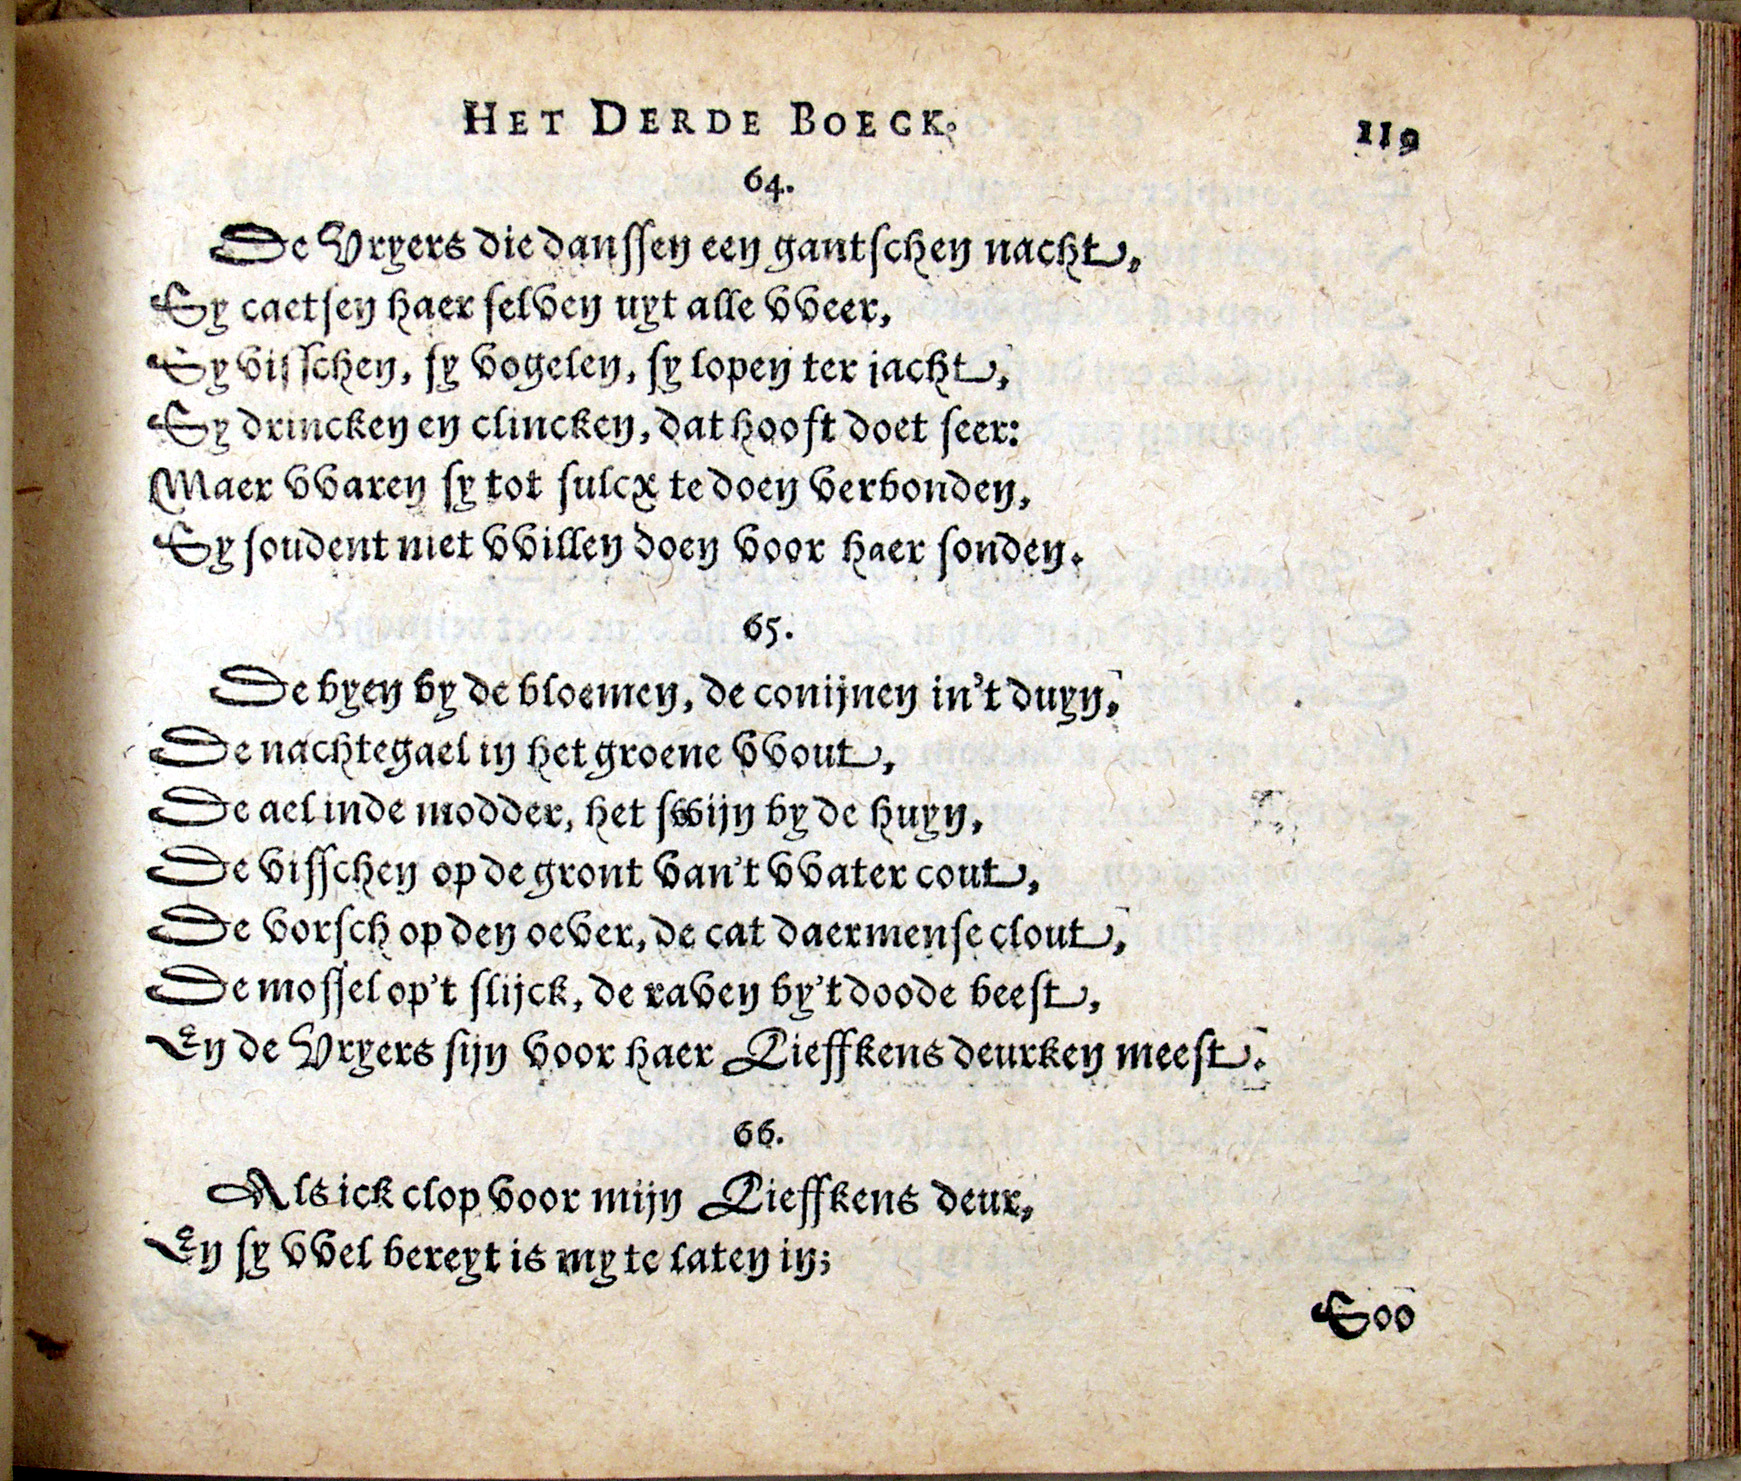 HET DERDE BOECK.
119
64.
De Vryers die danssen een gantschen nacht,
Sy caetsen haer selven uyt alle vveer,
Sy visschen, sy vogelen, sy lopen ter jacht,
Sy drincken en clincken, dat hooft doet seer:
Maer vvaren sy tot sulcx te doen verbonden,
Sy soudent niet vvillen doen voor haer sonden.
65.
De byen by de bloemen, de conijnen in't duyn,
De nachtegael in het groene vvout,
De ael inde modder, het swijn by de huyn,
De visschen op de gront van't vvater cout,
De vorsch op den oever, de cat daermense clout,
De mossel op't slijck, de raven by't doode beest,
En de Vryers sijn voor haer Lieffkens deurken meest.
66.
Als ick clop voor mijn Lieffkens deur,
En sy vvel bereyt is my te laten in;
Soo